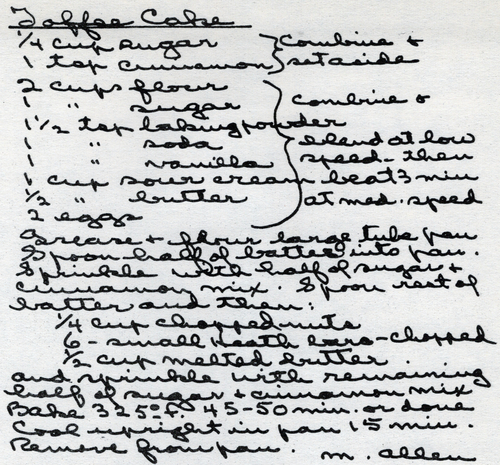 Toffee Cake
1/4 cup sugar } combine +
1 tsp cinnamon } set aside
2 cups flour
1 " sugar } combine +
1 1/2 tsp baking powder
1 " soda } blend at low
1 " vanilla speed - then
1 cup sour cream beat 3 min
1/2 " butter at med. speed
2 eggs
Grease + flour large tube pan
Spoon half of batter into pan.
Sprinkle with half of sugar +
cinnamon mix. Spoon rest of
batter and then:
1/4 cup chopped nuts
6 - small Heath bars - chopped
1/2 cup melted butter
and sprinkle with remaining
half of sugar + cinnamon mix
Bake 325° F. 45-50 min. or done
Cool upright in pan 15 min.
Remove from pan. M. Allen